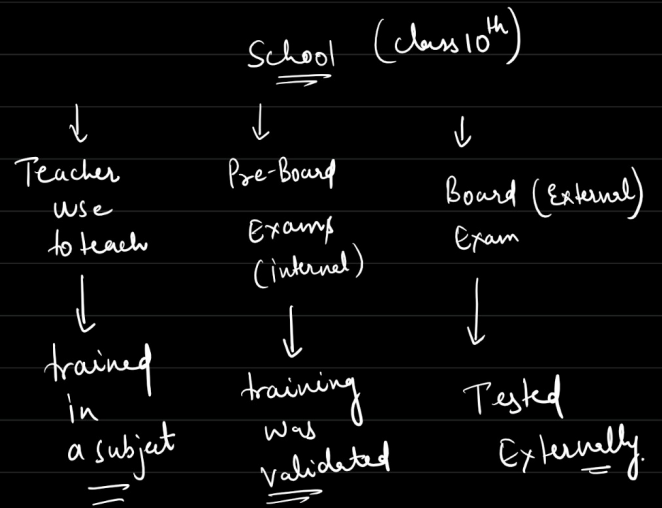 School (class 10th)
Teacher
use
to teach
trained
in
a subject
Pre-Board
Exams
(internal)
training
was
validated
Board (External)
Exam
Tested
Externally.